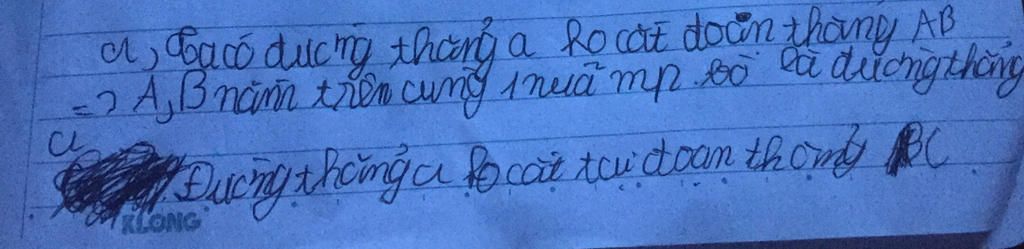 a, Ta có đường thẳng a ko cắt đoạn thẳng AB
=> A, B nằm trên cùng 1 nửa mp bờ là đường thẳng
a
Đường thẳng a ko cắt tại đoạn thẳng BC
KLONG